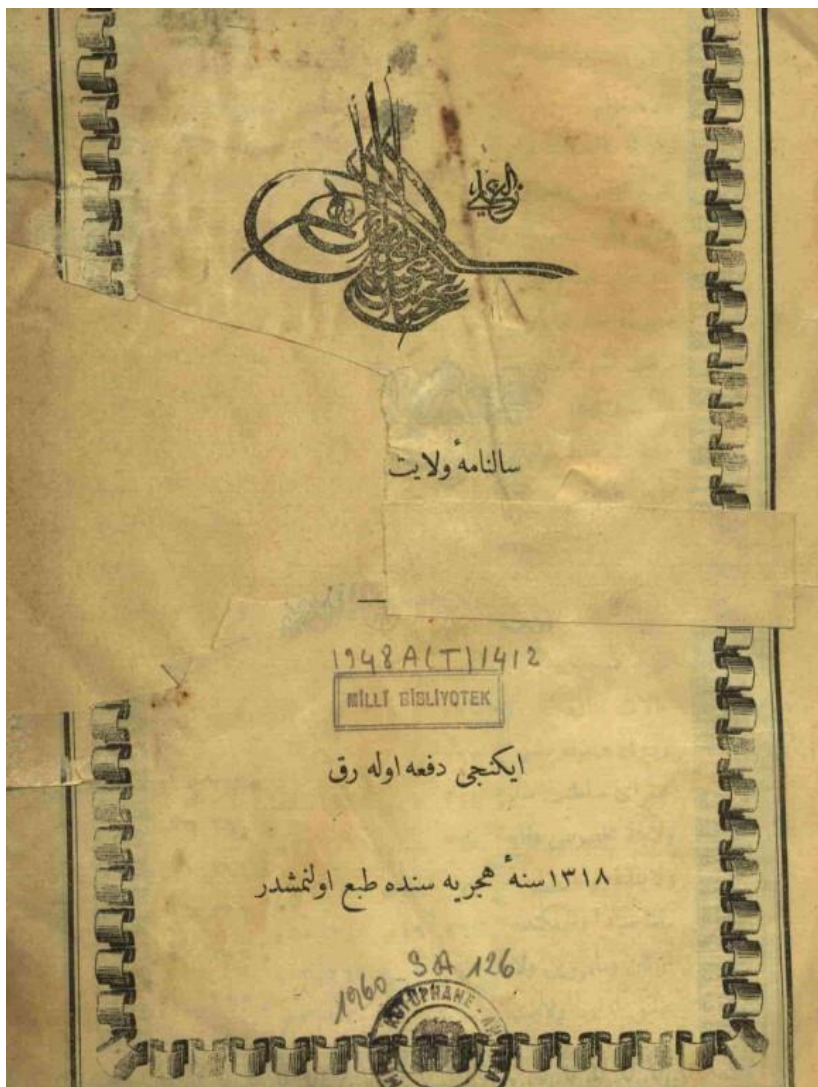 الغازی
سالنامهٔ ولایت
1948 A(T) 1412
MİLLÎ BİBLİYOTEK
ایکنجی دفعه اوله رق
١٣١٨ سنهٔ هجریه سنده طبع اولنمشدر
1960 SA 126
KÜTÜPHANE - A